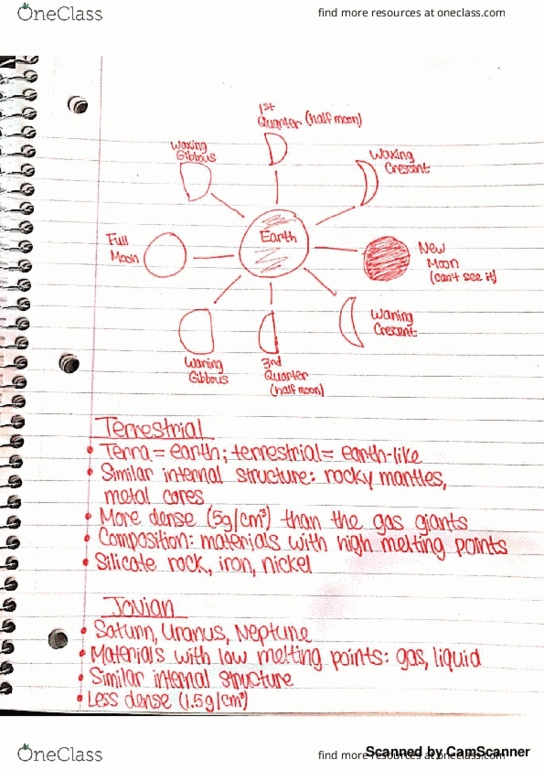 OneClass
find more resources at oneclass.com
1st
Quarter (half moon)
Waxing
Gibbous
Waxing
Crescent
Full
Moon
Earth
New
Moon
(can't see it)
Waning
Crescent
Waning
Gibbous
3rd
Quarter
(half moon)
Terrestrial
• Terra = earth; terrestrial = earth-like
• Similar internal structure: rocky mantles,
metal cores
• More dense (5g/cm³) than the gas giants
• Composition: materials with high melting points
• Silicate rock, iron, nickel
Jovian
• Saturn, Uranus, Neptune
• Materials with low melting points: gas, liquid
• Similar internal structure
• Less dense (1.5g/cm³)
OneClass
find more resources at oneclass.com
Scanned by CamScanner